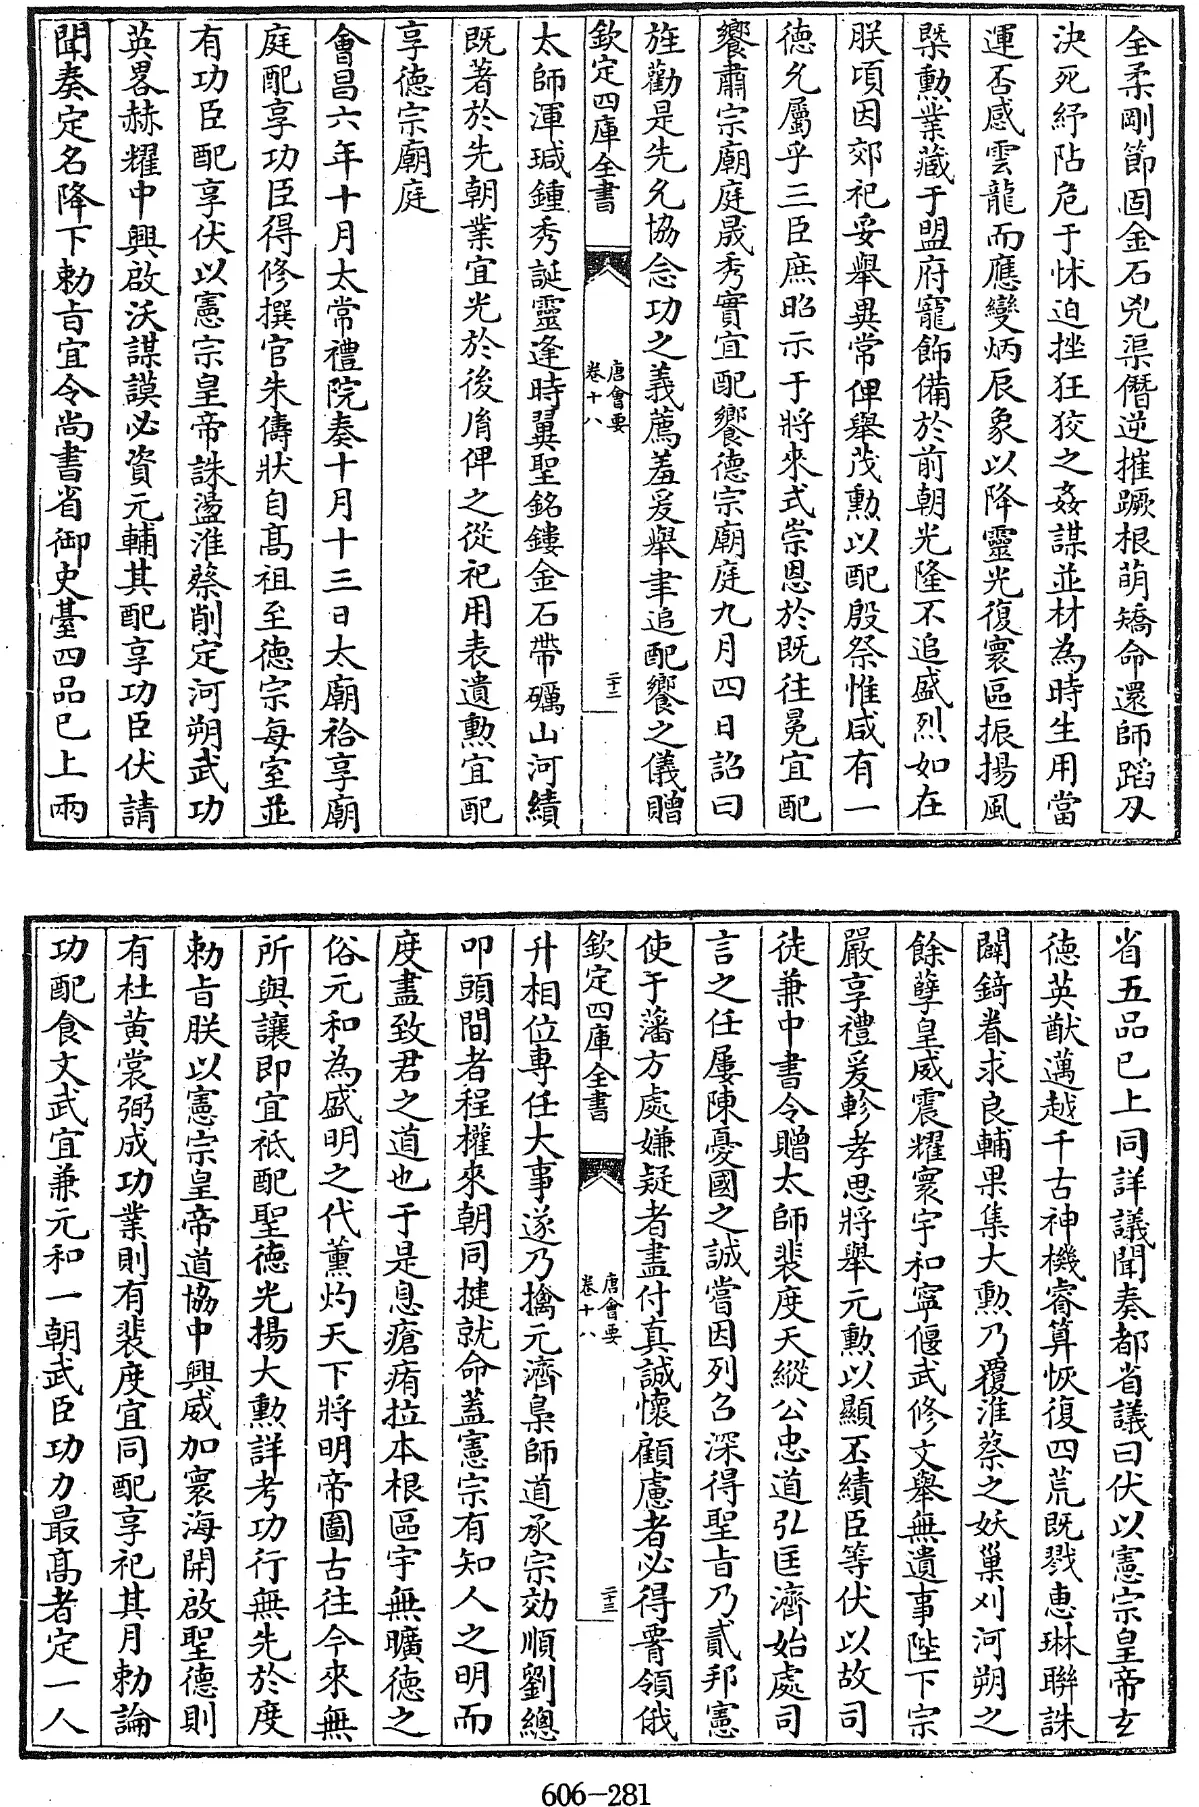 全柔剛節固金石兇渠僭逆摧蹶根萌矯命還師蹈刄
決死紓阽危于怵迫挫狂狡之姦謀並材為時生用當
運否感雲龍而應變炳辰象以降靈光復寰區振揚風
槩勲業藏于盟府寵飾備於前朝光隆不追盛烈如在
朕頃因郊祀妥舉異常俾舉茂勲以配殷祭惟咸有一
徳允屬乎三臣庶昭示于將來式崇恩於既往晃宜配
饗肅宗廟庭晟秀實宜配饗徳宗廟庭九月四日詔曰
旌勸是先允協念功之義薦羞爰舉聿追配饗之儀贈
欽定四庫全書
唐會要
卷十八
二十二
太師渾瑊鍾秀誕靈逢時翼聖銘鏤金石帶礪山河績
既著於先朝業宜光於後𦙍俾之從祀用表遺勲宜配
享徳宗廟庭
會昌六年十月太常禮院奏十月十三日太廟祫享廟
庭配享功臣得修撰官朱儔狀自髙祖至徳宗每室並
有功臣配享伏以憲宗皇帝誅盪淮蔡削定河朔武功
英畧赫耀中興啟沃謀謨必資元輔其配享功臣伏請
聞奏定名降下勅㫖宜令尚書省御史臺四品已上兩
省五品已上同詳議聞奏都省議曰伏以憲宗皇帝𤣥
徳英猷邁越千古神機睿算恢復四荒既戮恵琳聨誅
闢錡眷求良輔果集大勲乃覆淮蔡之妖巢刈河朔之
餘孽皇威震耀寰宇和寧偃武修文舉無遺事陛下宗
嚴享禮爰軫孝思將舉元勲以顯丕績臣等伏以故司
徒兼中書令贈太師裴度天縱公忠道弘匡濟始處司
言之任屢陳憂國之誠嘗因列召深得聖㫖乃貳邦憲
使于藩方處嫌疑者盡付真誠懷顧慮者必得要領俄
欽定四庫全書
唐會要
卷十八
二十三
升相位專任大事遂乃擒元濟梟師道承宗効順劉總
叩頭間者程權來朝同揵就命蓋憲宗有知人之明而
度盡致君之道也于是息瘡痏拉本根區宇無曠徳之
俗元和為盛明之代薫灼天下將明帝圖古往今來無
所與讓即宜祗配聖徳光揚大勲詳考功行無先於度
勅㫖朕以憲宗皇帝道協中興威加寰海開啟聖徳則
有杜黃裳弼成功業則有裴度宜同配享祀其月勅論
功配食文武宜兼元和一朝武臣功力最髙者定一人
606-281